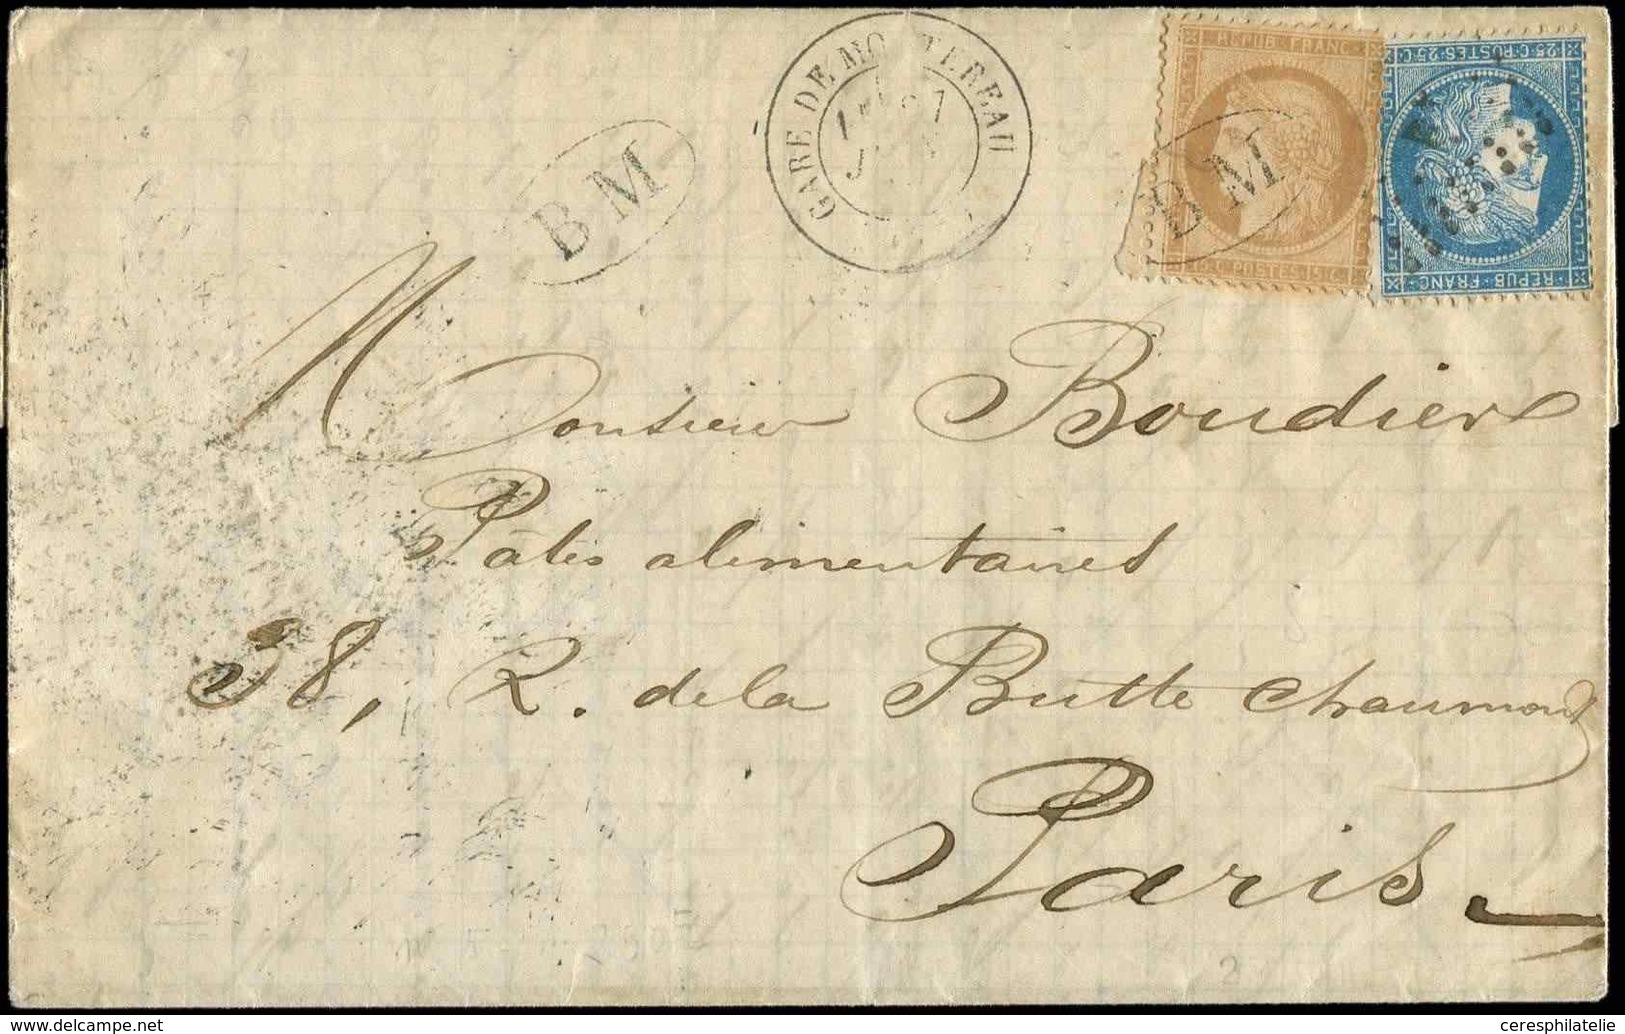 GARE DE MONTEREAU
REPUB·FRANC·
15 C. POSTES 15 C.
25·C·POSTES·25·C
REPUB·FRANC·
B M
B M
Monsieur Boudier
Pâtes alimentaires
38, R. de la Butte Chaumont
Paris
2
www.delcampe.net
ceresphilatelie